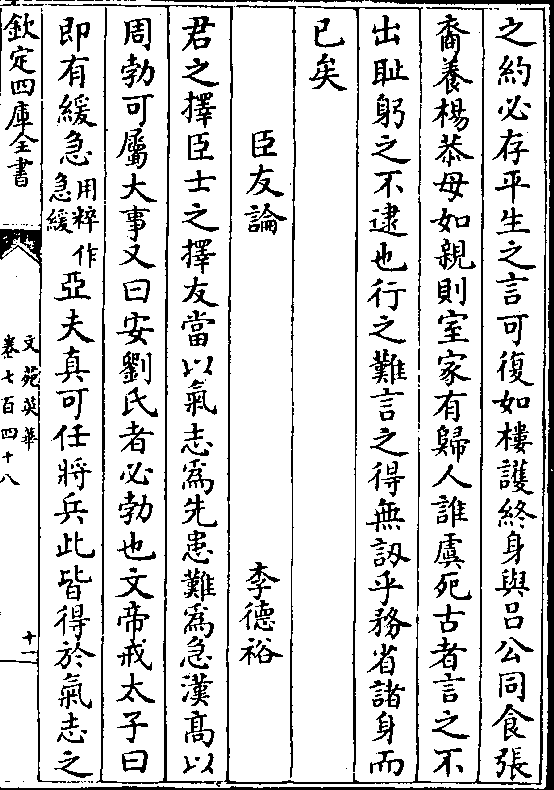 之約必存平生之言可復如樓護終身與呂公同食張
裔養楊恭母如親則室家有歸人誰虞死古者言之不
出恥躬之不逮也行之難言之得無訒乎務省諸身而
已矣
臣友論　　　　李德裕
君之擇臣士之擇友當以氣志爲先患難爲急漢高以
周勃可屬大事又曰安劉氏者必勃也文帝戒太子曰
即有緩急用粹作急緩亞夫真可任將兵此皆得於氣志之
欽定四庫全書
文苑英華
卷七百四十八
十一